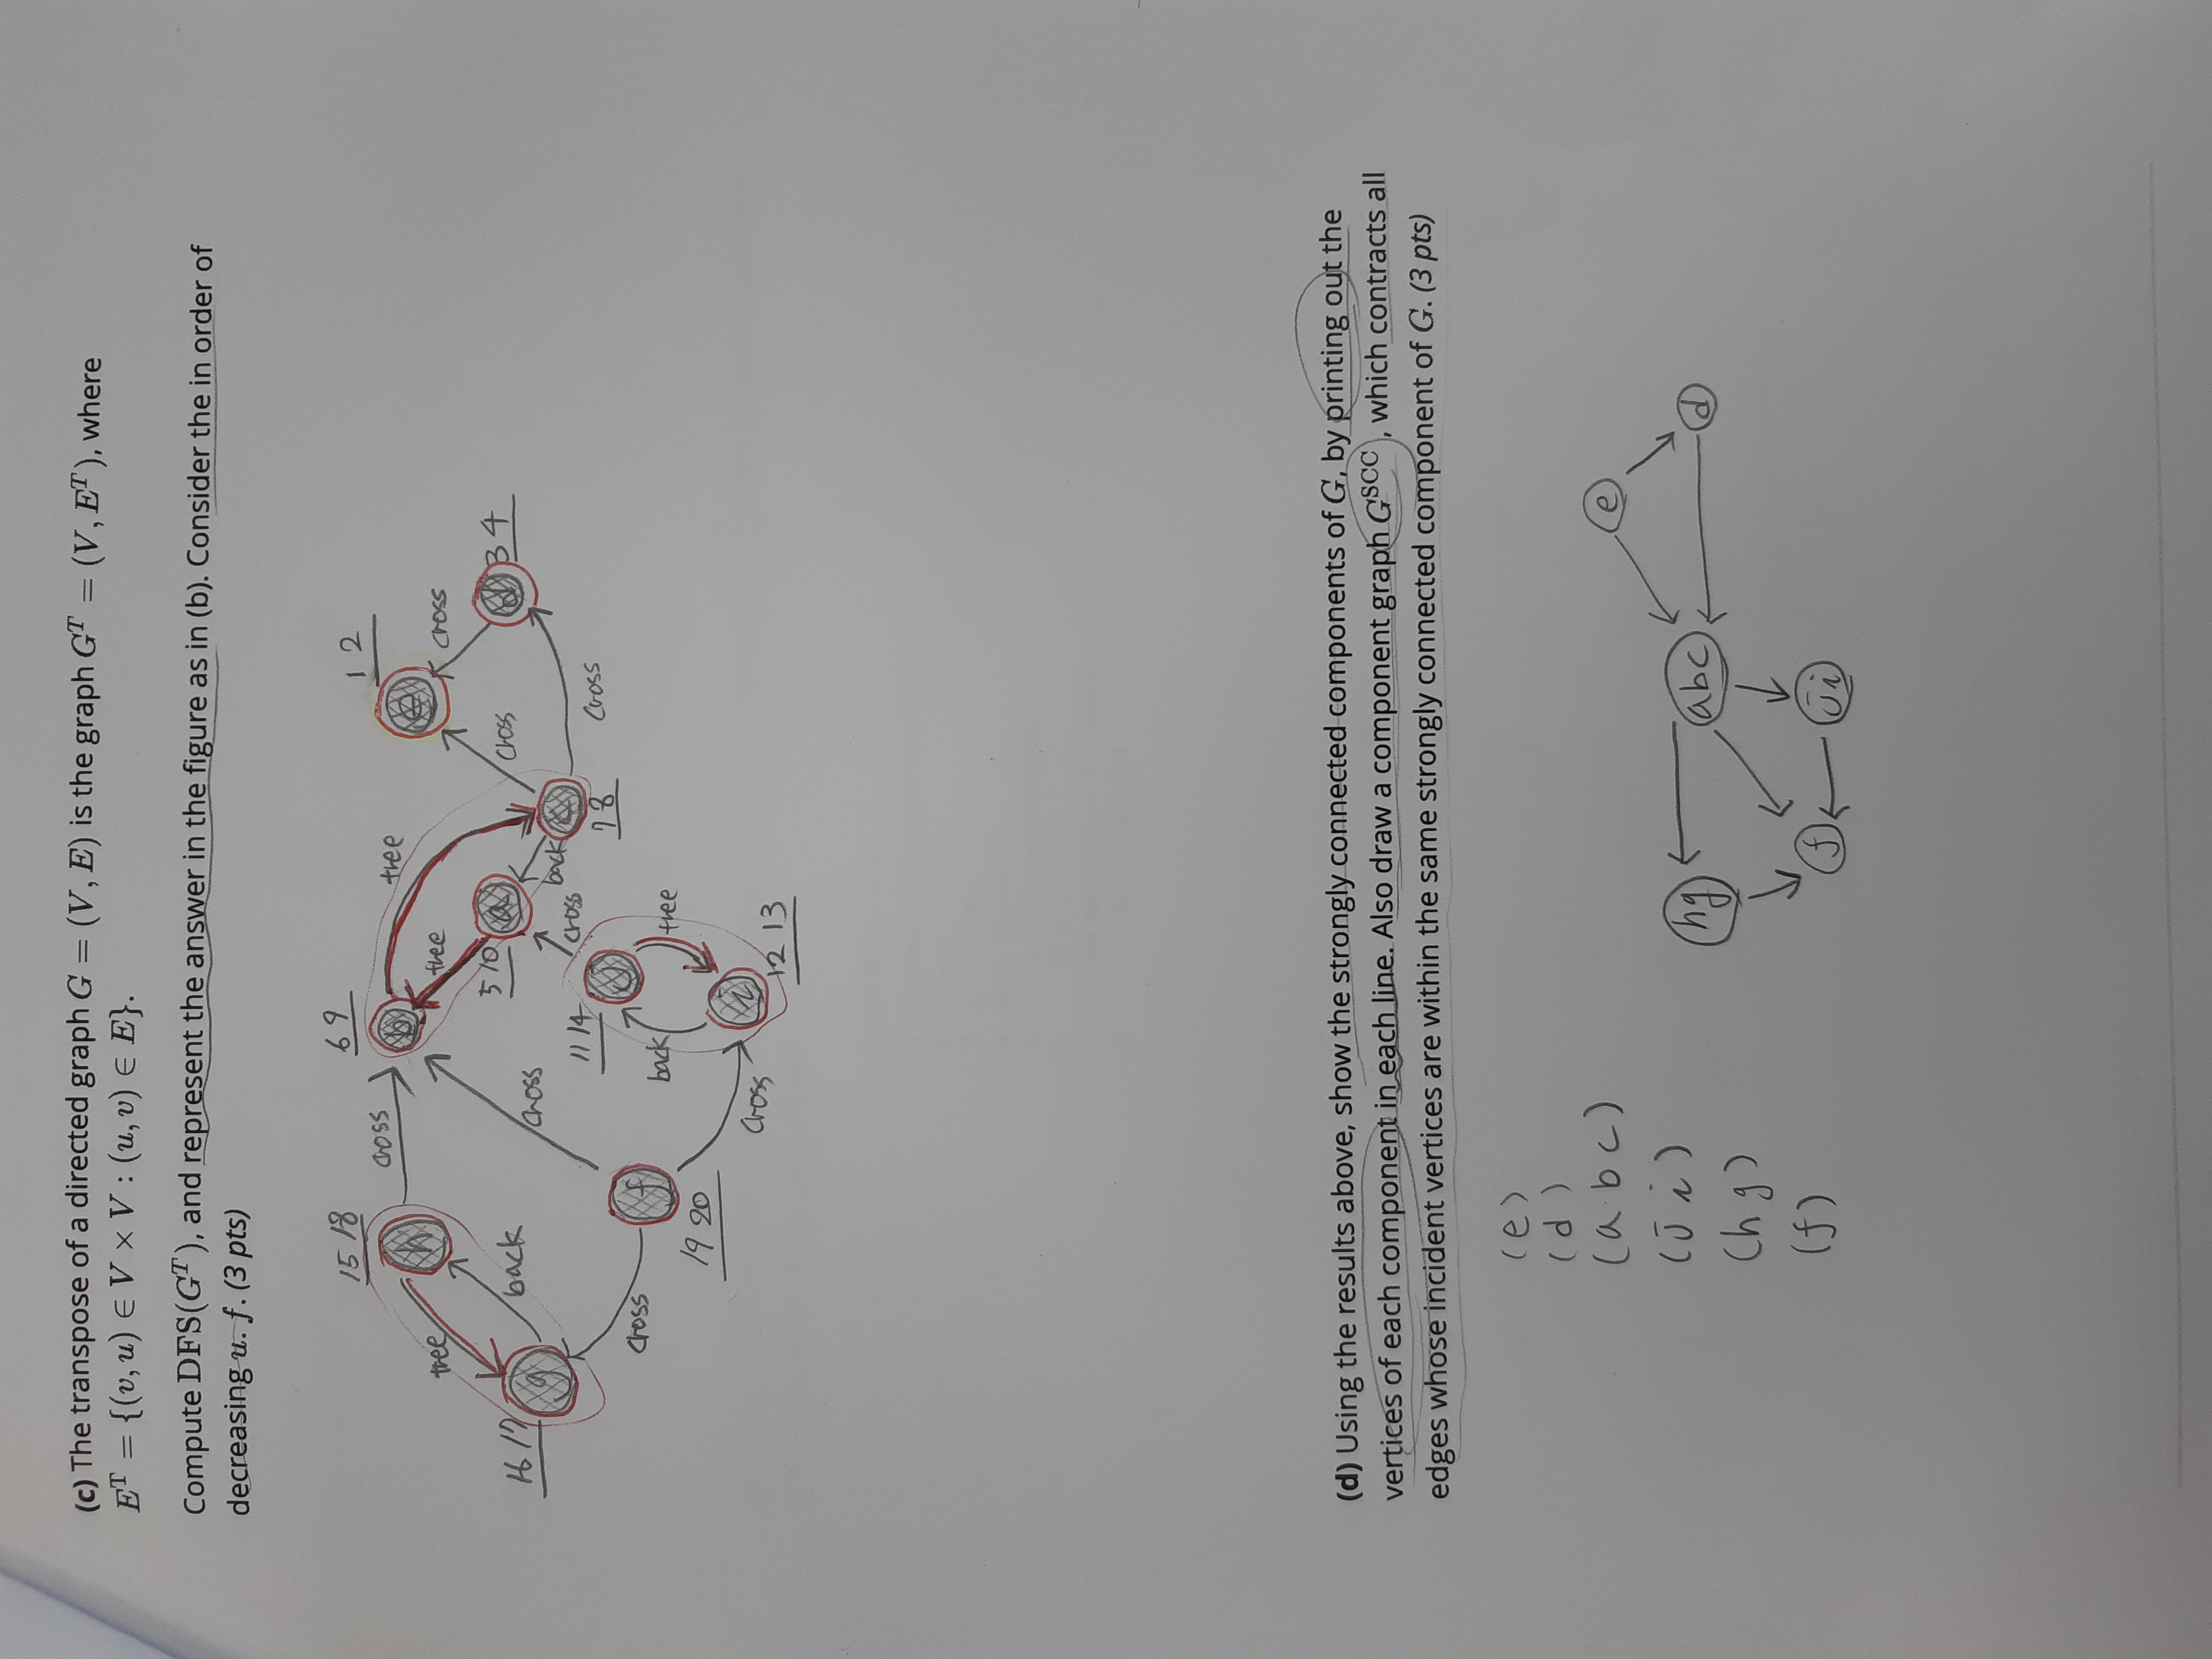 (c) The transpose of a directed graph G = (V, E) is the graph Gᵀ = (V, Eᵀ), where
Eᵀ = {(v, u) ∈ V × V : (u, v) ∈ E}.
Compute DFS(Gᵀ), and represent the answer in the figure as in (b). Consider the in order of
decreasing u. f. (3 pts)
15 18
6 9
1 2
cross
tree
h
b
e
tree
tree
cross
5 10
a
cross
d
3 4
16 17
back
g
cross
back
c
11 14
cross
cross
7 8
j
cross
f
back
tree
19 20
i
cross
12 13
(d) Using the results above, show the strongly connected components of G, by printing out the
vertices of each component in each line. Also draw a component graph Gˢᶜᶜ, which contracts all
edges whose incident vertices are within the same strongly connected component of G. (3 pts)
(e)
(d)
(a b c)
(j i)
(h g)
(f)
e
hg
abc
d
f
ji